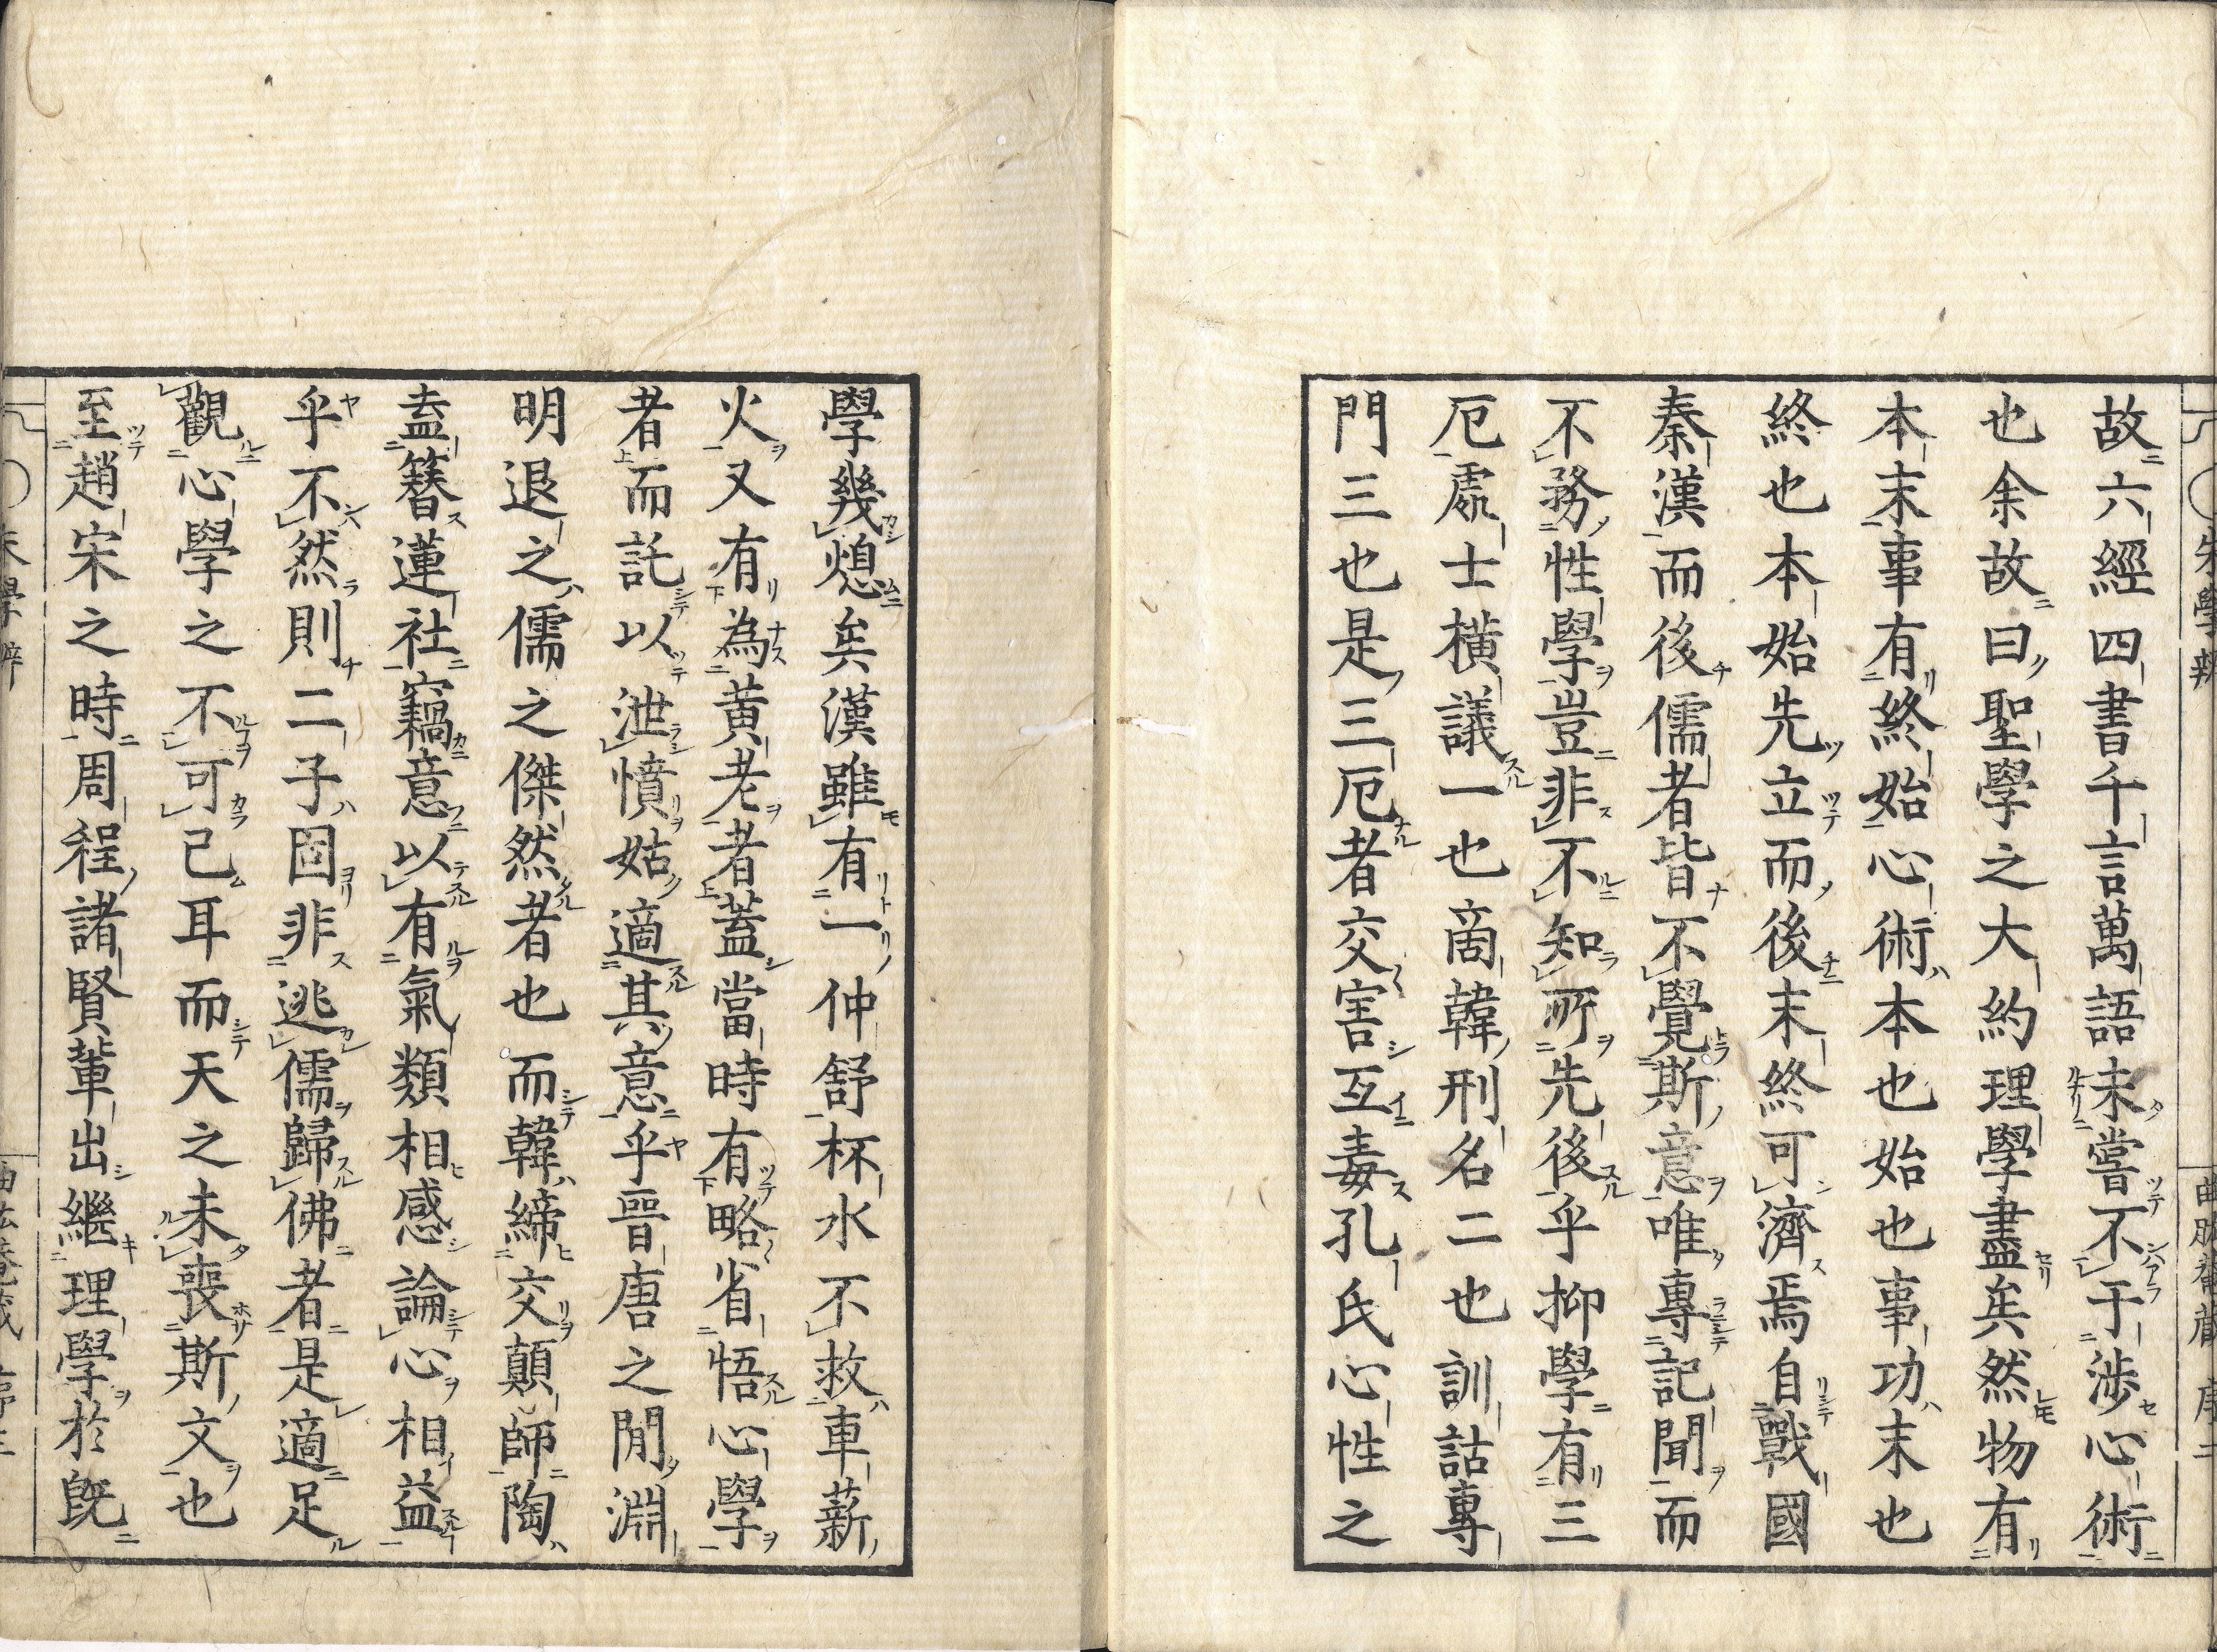 故六經四書千言萬語未嘗不于渉心術
也余故曰聖學之大約理學盡矣然物有
本末事有終始心術本也始也事功末也
終也本始先立而後末終可濟焉自戰國
秦漢而後儒者皆不覺斯意唯專記聞而
不務性學豈非不知所先後乎抑學有三
厄處士橫議一也啇韓刑名二也訓詁專
門三也是三厄者交害互毒孔氏心性之
學幾熄矣漢雖有一仲舒杯水不救車薪
火又有為黃老者蓋當時有略省悟心學
者而託以泄憤姑適其意乎晉唐之閒淵
明退之儒之傑然者也而韓締交顛師陶
盍簪蓮社竊意以有氣類相感論心相益
乎不然則二子固非逃儒歸佛者是適足
觀心學之不可已耳而天之未喪斯文也
至趙宋之時周程諸賢輩出繼理學於既